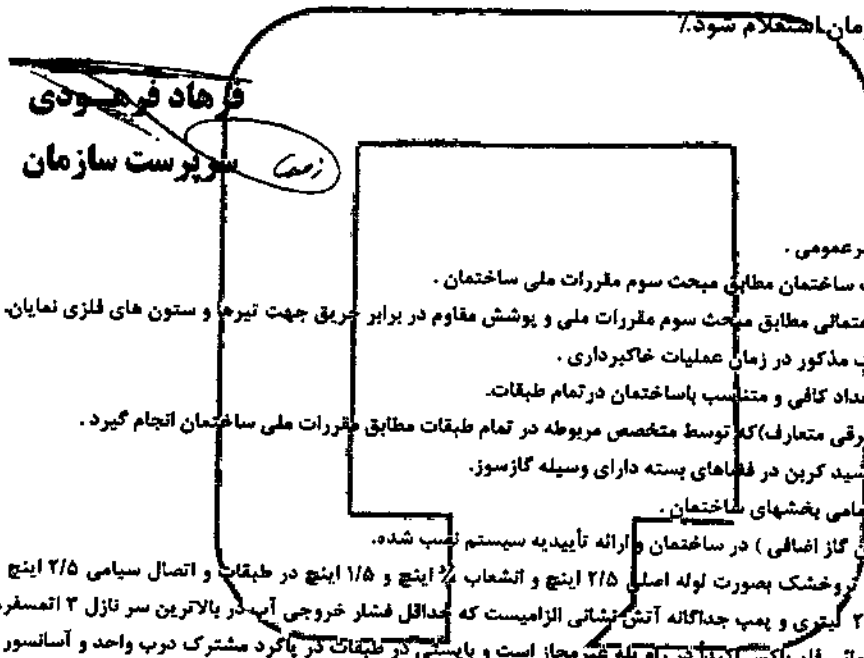 مان استعلام شود./
فرهاد فرهودی
سرپرست سازمان
عمومی .
ساختمان مطابق مبحث سوم مقررات ملی ساختمان .
مطابق مبحث سوم مقررات ملی و پوشش مقاوم در برابر حریق جهت تیرها و ستون های فلزی نمایان.
مذکور در زمان عملیات خاکبرداری .
کافی و متناسب باساختمان درتمام طبقات.
متعارف)که توسط متخصص مربوطه در تمام طبقات مطابق مقررات ملی ساختمان انجام گیرد .
کربن در فضاهای بسته دارای وسیله گازسوز.
بخشهای ساختمان .
گاز اضافی ) در ساختمان و ارائه تأییدیه سیستم نصب شده.
بصورت لوله اصلی ۲/۵ اینچ و انشعاب اینچ و ۱/۵ اینچ در طبقات و اتصال سیامی ۲/۵ اینچ
لیتری و پمپ جداگانه آتش نشانی الزامیست که حداقل فشار خروجی آب در بالاترین سر نازل ۳ اتمسفر
در راه پله غیرمجاز است و بایستی در طبقات در پاگرد مشترک درب واحد و آسانسور